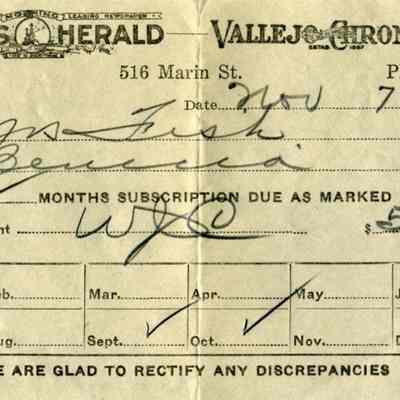 MORNING LEADING NEWSPAPER
S HERALD VALLEJO CHRON
ESTAB. 1867
516 Marin St. P
Date Nov 7
Fish
Benicia
MONTHS SUBSCRIPTION DUE AS MARKED
nt $ 5
eb. Mar. Apr. May J
ug. Sept. ✓ Oct. ✓ Nov. D
E ARE GLAD TO RECTIFY ANY DISCREPANCIES